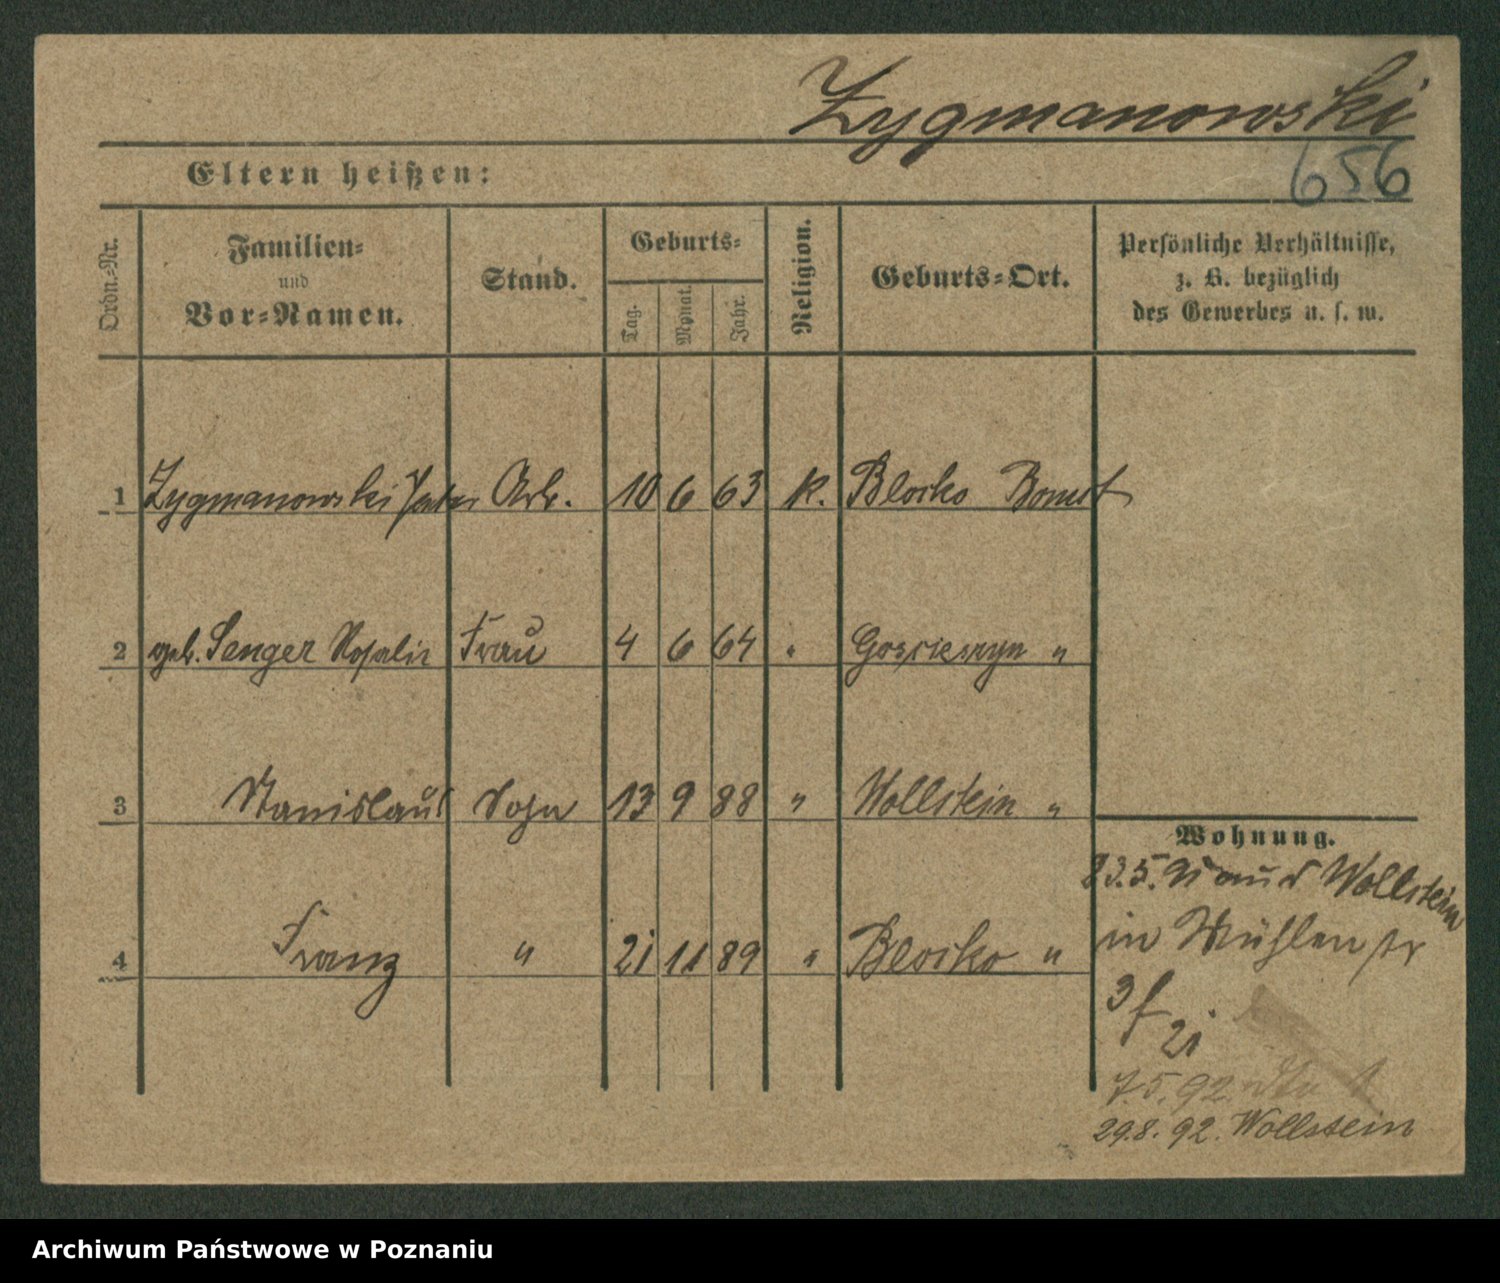 Zygmanowski
656
Eltern heißen:
Ordn.-Nr.
Familien-
und
Vor-Namen.
Stand.
Geburts-
Tag.
Monat.
Jahr.
Religion.
Geburts-Ort.
Persönliche Verhältnisse,
z. B. bezüglich
des Gewerbes u. s. w.
1 Zygmanowski Peter Arb. 10 6 63 K. Blosko Bomst
2 geb. Senger Rosalie Frau 4 6 64 " "
3 Stanislaus Sohn 13 9 88 " Wollstein "
4 Franz " 21 11 89 " Blosko "
Wohnung.
23.5.91 aus Wollstein
in Mühlenstr
3 f
21
7.5.92 dto
29.8.92. Wollstein
Archiwum Państwowe w Poznaniu